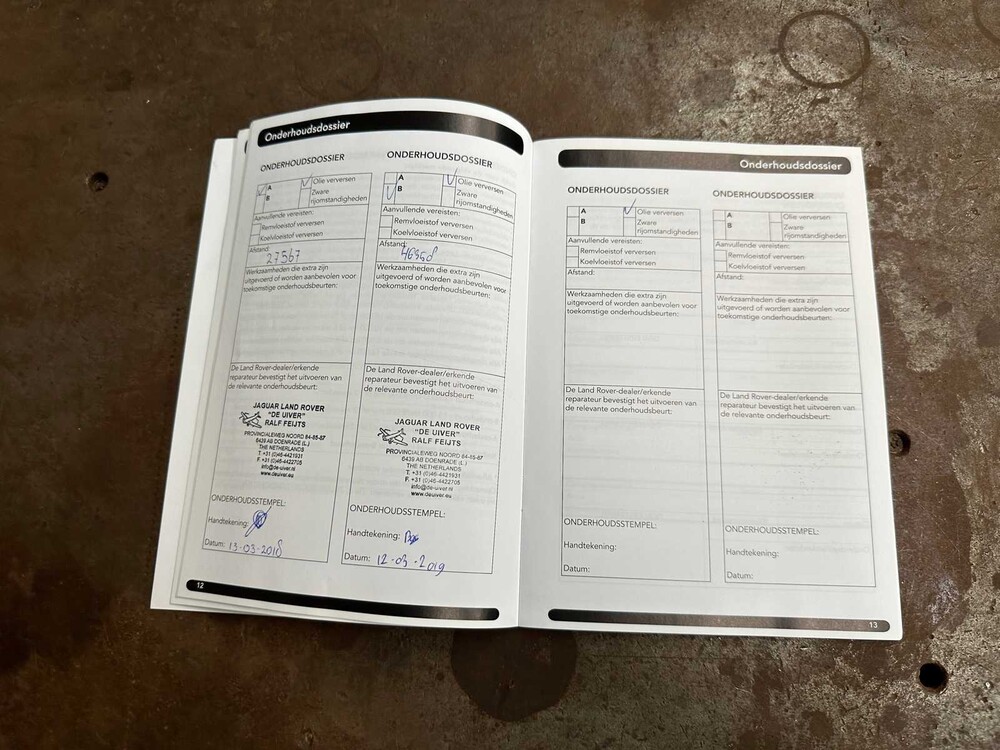 Onderhoudsdossier
ONDERHOUDSDOSSIER
A
B
Olie verversen
Zware
rijomstandigheden
Aanvullende vereisten:
Remvloeistof verversen
Koelvloeistof verversen
Afstand:
27567
Werkzaamheden die extra zijn
uitgevoerd of worden aanbevolen voor
toekomstige onderhoudsbeurten:
De Land Rover-dealer/erkende
reparateur bevestigt het uitvoeren van
de relevante onderhoudsbeurt:
JAGUAR LAND ROVER
"DE UIVER"
RALF FEIJTS
PROVINCIALEWEG NOORD 84-85-87
6439 AB DOENRADE (L.)
THE NETHERLANDS
T. +31 (0)46-4421931
F. +31 (0)46-4422705
info@de-uiver.nl
www.deuiver.eu
ONDERHOUDSSTEMPEL:
Handtekening:
Datum: 13-03-2018
ONDERHOUDSDOSSIER
A
B
Olie verversen
Zware
rijomstandigheden
Aanvullende vereisten:
Remvloeistof verversen
Koelvloeistof verversen
Afstand:
Werkzaamheden die extra zijn
uitgevoerd of worden aanbevolen voor
toekomstige onderhoudsbeurten:
De Land Rover-dealer/erkende
reparateur bevestigt het uitvoeren van
de relevante onderhoudsbeurt:
JAGUAR LAND ROVER
"DE UIVER"
RALF FEIJTS
PROVINCIALEWEG NOORD 84-85-87
6439 AB DOENRADE (L.)
THE NETHERLANDS
T. +31 (0)46-4421931
F. +31 (0)46-4422705
info@de-uiver.nl
www.deuiver.eu
ONDERHOUDSSTEMPEL:
Handtekening:
Datum: 12-03-2019
12
Onderhoudsdossier
ONDERHOUDSDOSSIER
A
B
Olie verversen
Zware
rijomstandigheden
Aanvullende vereisten:
Remvloeistof verversen
Koelvloeistof verversen
Afstand:
Werkzaamheden die extra zijn
uitgevoerd of worden aanbevolen voor
toekomstige onderhoudsbeurten:
De Land Rover-dealer/erkende
reparateur bevestigt het uitvoeren van
de relevante onderhoudsbeurt:
ONDERHOUDSSTEMPEL:
Handtekening:
Datum:
ONDERHOUDSDOSSIER
A
B
Olie verversen
Zware
rijomstandigheden
Aanvullende vereisten:
Remvloeistof verversen
Koelvloeistof verversen
Afstand:
Werkzaamheden die extra zijn
uitgevoerd of worden aanbevolen voor
toekomstige onderhoudsbeurten:
De Land Rover-dealer/erkende
reparateur bevestigt het uitvoeren van
de relevante onderhoudsbeurt:
ONDERHOUDSSTEMPEL:
Handtekening:
Datum:
13